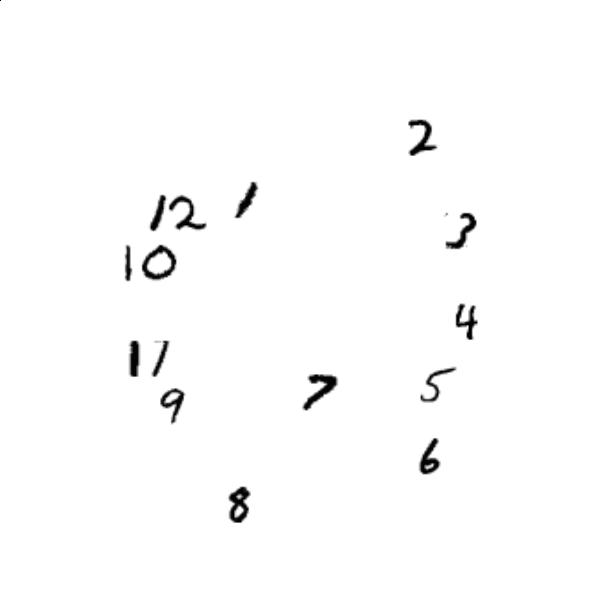 2
12 1
3
10
4
17
7 5
9
6
8